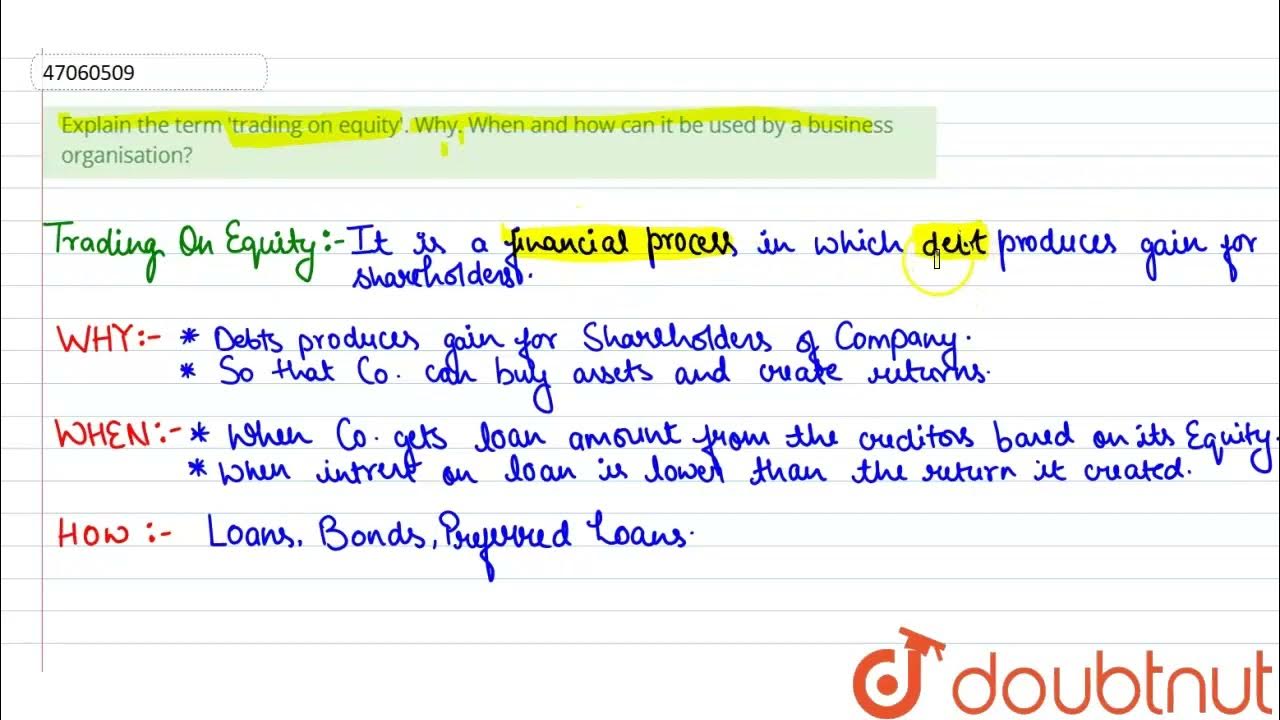 47060509
Explain the term 'trading on equity'. Why. When and how can it be used by a business
organisation?
Trading On Equity:- It is a financial process in which debt produces gain for
shareholders.
WHY:- * Debts produces gain for Shareholders of Company.
* So that Co. can buy assets and create returns.
WHEN:- * When Co. gets loan amount from the creditors based on its Equity.
* When intrest on loan is lower than the return it created.
HOW :- Loans, Bonds, Preferred Loans.
doubtnut